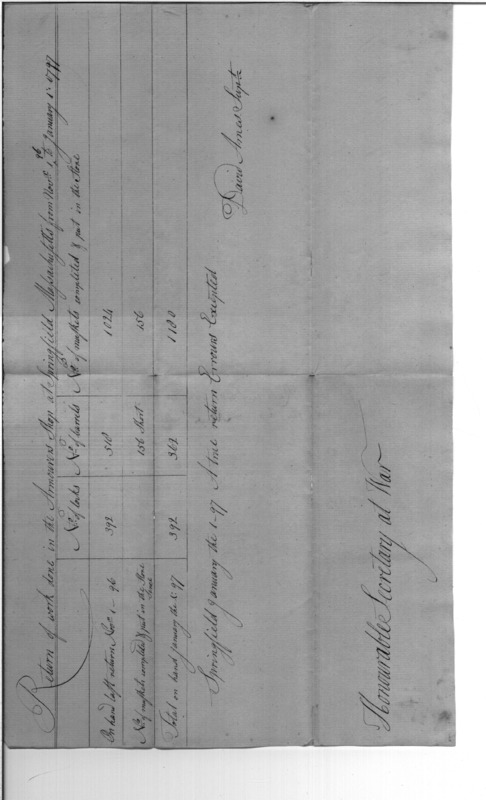 Return of work done in the Armourers Shop at Springfield Massachusetts from Novr 1, to January 1st 1797
No. of locks No. of barrels No. of muskets completed & put in the Store
On hand last return Novr 1 - 96 392 518 1024
No. of muskets completed & put in the Store 156 Short 156
Total on hand January the 1 97 392 362 1180
Springfield January the 1 - 97 A true return Errours Excepted
David Ames Supt
Honourable Secretary at War